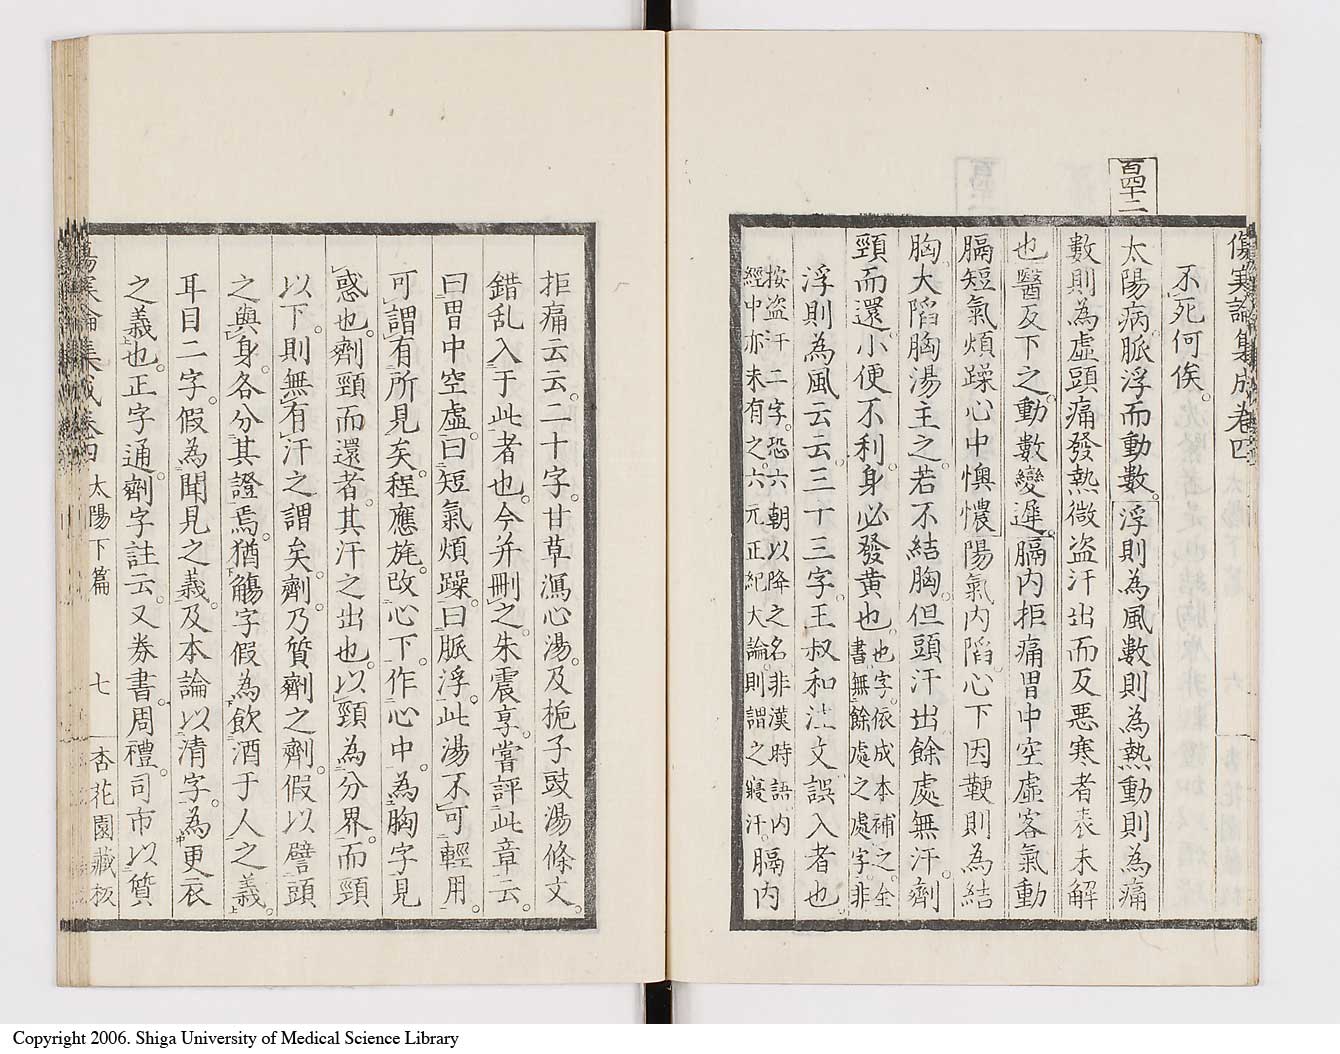 百四十二
傷寒論集成卷四
不死何俟。
太陽病。脈浮而動數。浮則為風數則為熱動則為痛
數則為虛頭痛發熱微盗汗出而反惡寒者表未解
也醫反下之動數變遲。膈内拒痛胃中空虛客氣動
膈短氣煩躁心中懊憹陽氣内陷。心下因鞕則為結
胸。大陷胸湯主之。若不結胸。但頭汗出餘處無汗。劑
頸而還。小便不利。身必發黄也。也字依成本補之。全書無餘處之處字。非
浮則為風云云三十三字。王叔和注文誤入者也。
按盗汗二字。恐六朝以降之名非漢時語内經中亦未有之。六元正紀大論。則謂之寢汗。膈内
拒痛云云。二十字。甘草瀉心湯。及梔子豉湯條文。
錯乱入于此者也。今并刪之。朱震亨。嘗評此章云。
曰胃中空虛。曰短氣煩躁。曰脈浮。此湯不可輕用。
可謂有所見矣。程應旄。改心下。作心中。為胸字見
惑也。劑頸而還者。其汗之出也。以頸為分界。而頸
以下。則無有汗之謂矣。劑乃質劑之劑。假以譬頭
之與身各分其證焉。猶觴字假為飲酒于人之義。
耳目二字。假為聞見之義。及本論以清字。為更衣
之義也。正字通。劑字註云。又券書。周禮。司市以質
傷寒論集成卷四 太陽下篇 七 杏花園藏板
Copyright 2006. Shiga University of Medical Science Library